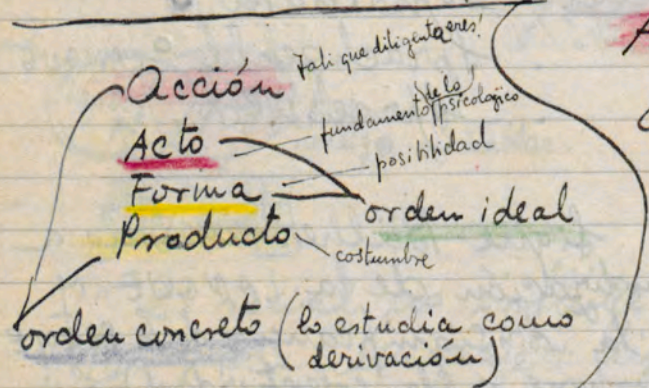 Acción
Fali que diligenta eres!
Acto
fundamento de lo psicológico
Forma
posibilidad
orden ideal
Producto
costumbre
orden concreto (lo estudia como
derivación)